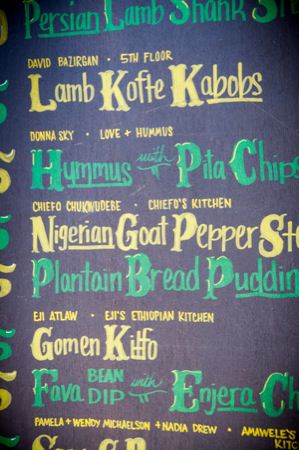 Persian Lamb Shank
DAVID BAZIRGAN · 5TH FLOOR
Lamb Kofte Kabobs
DONNA SKY · LOVE + HUMMUS
Hummus with Pita Chips
CHIEFO CHUKWUDEBE · CHIEFO'S KITCHEN
Nigerian Goat Pepper
Plantain Bread Puddin
EJI ATLAW · EJI'S ETHIOPIAN KITCHEN
Gomen Kitfo
Fava BEAN DIP with Enjera Ch
PAMELA + WENDY MICHAELSON + NADIA DREW · AMAWELE'S